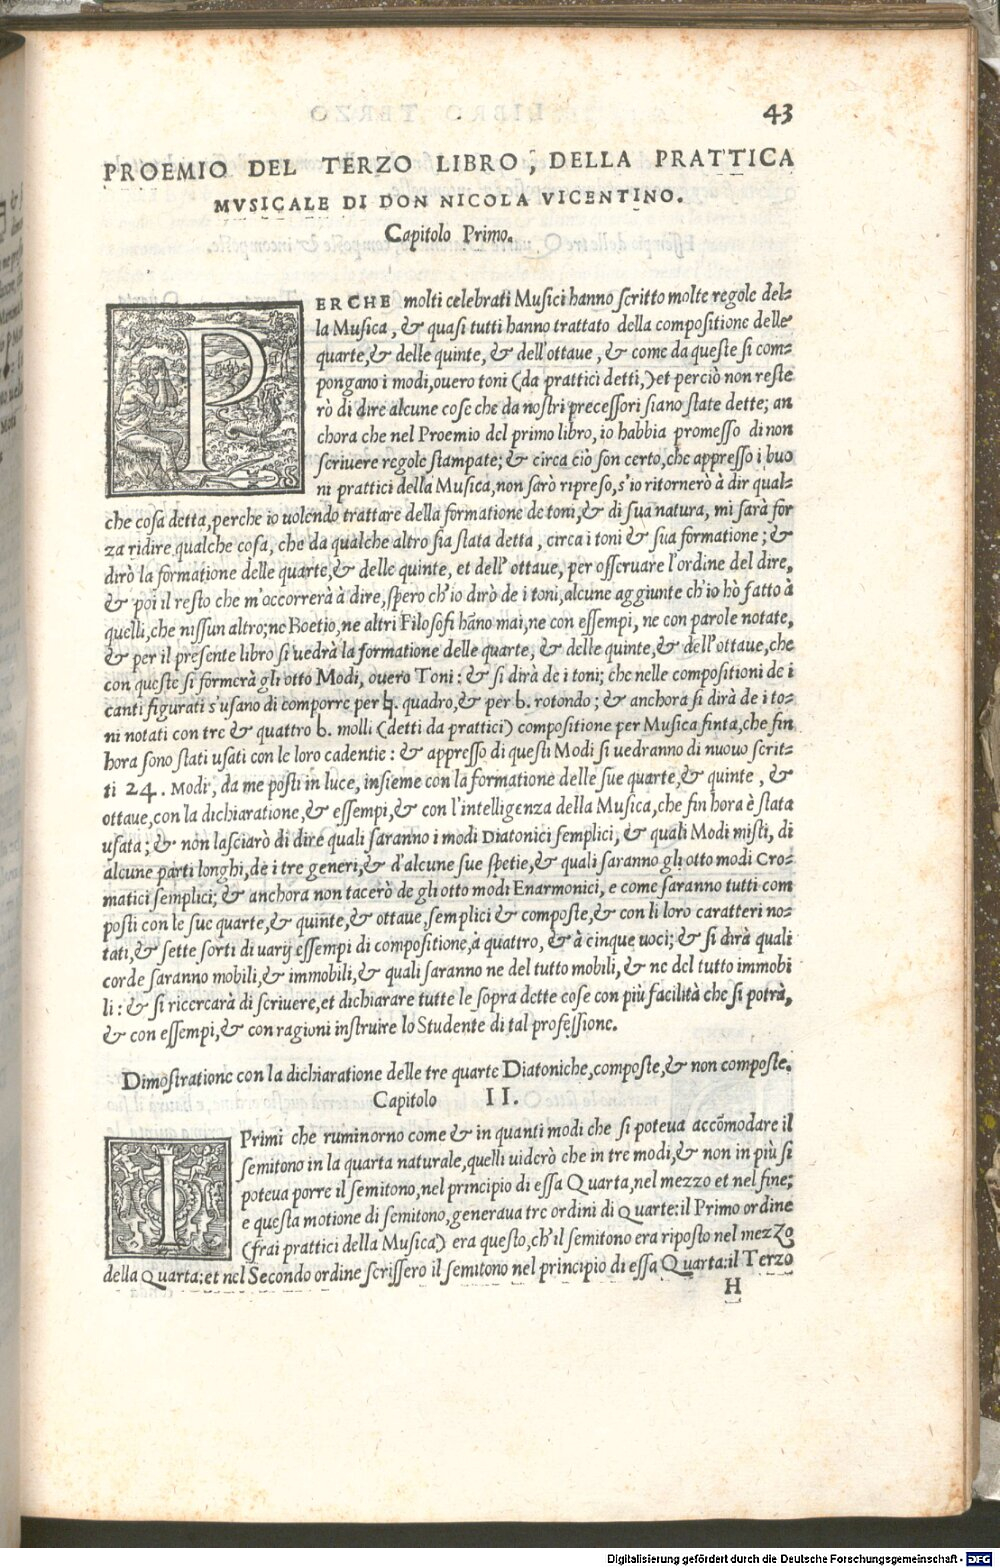 43
PROEMIO DEL TERZO LIBRO, DELLA PRATTICA
MVSICALE DI DON NICOLA VICENTINO.
Capitolo Primo.
PERCHE molti celebrati Musici hanno scritto molte regole del-
la Musica, & quasi tutti hanno trattato della compositione delle
quarte, & delle quinte, & dell'ottaue, & come da queste si com-
pongano i modi, ouero toni (da prattici detti,) et perciò non reste
rò di dire alcune cose che da nostri precessori siano state dette; an
chora che nel Proemio del primo libro, io habbia promesso di non
scriuere regole stampate; & circa ciò son certo, che appresso i buo
ni prattici della Musica, non sarò ripreso, s'io ritornerò à dir qual-
che cosa detta, perche io uolendo trattare della formatione de toni, & di sua natura, mi sarà for
za ridire qualche cosa, che da qualche altro sia stata detta, circa i toni & sua formatione; &
dirò la formatione delle quarte, & delle quinte, et dell' ottaue, per osseruare l'ordine del dire,
& poi il resto che m'occorrerà à dire, spero ch'io dirò de i toni, alcune aggiunte ch'io hò fatto à
quelli, che nissun altro; ne Boetio, ne altri Filosofi hãno mai, ne con essempi, ne con parole notate,
& per il presente libro si uedrà la formatione delle quarte, & delle quinte, & dell'ottaue, che
con queste si formerà gli otto Modi, ouero Toni: & si dirà de i toni; che nelle compositioni de i
canti figurati s'usano di comporre per ♮. quadro, & per b. rotondo; & anchora si dirà de i to-
ni notati con tre & quattro b. molli (detti da prattici) compositione per Musica finta, che fin
hora sono stati usati con le loro cadentie: & appresso di questi Modi si uedranno di nuouo scrit-
ti 24. Modi, da me posti in luce, insieme con la formatione delle sue quarte, & quinte, &
ottaue, con la dichiaratione, & essempi, & con l'intelligenza della Musica, che fin hora è stata
usata; & non lasciarò di dire quali saranno i modi Diatonici semplici, & quali Modi misti, di
alcune parti longhi, de i tre generi, & d'alcune sue spetie, & quali saranno gli otto modi Cro-
matici semplici; & anchora non tacerò de gli otto modi Enarmonici, e come saranno tutti com
posti con le sue quarte, & quinte, & ottaue, semplici & composte, & con li loro caratteri no-
tati, & sette sorti di varij essempi di compositione, à quattro, & à cinque uoci; & si dirà quali
corde saranno mobili, & immobili, & quali saranno ne del tutto mobili, & ne del tutto immobi
li: & si ricercarà di scriuere, et dichiarare tutte le sopra dette cose con più facilità che si potrà,
& con essempi, & con ragioni instruire lo Studente di tal professione.
Dimostratione con la dichiaratione delle tre quarte Diatoniche, composte, & non composte.
Capitolo II.
I Primi che ruminorno come & in quanti modi che si poteua accõmodare il
semitono in la quarta naturale, quelli uiderò che in tre modi, & non in più si
poteua porre il semitono, nel principio di essa Quarta, nel mezzo et nel fine;
e questa motione di semitono, generaua tre ordini di Quarte: il Primo ordine
(frai prattici della Musica) era questo, ch'il semitono era riposto nel mezzo
della Quarta: et nel Secondo ordine scrissero il semitono nel principio di essa Quarta: il Terzo
H
Digitalisierung gefördert durch die Deutsche Forschungsgemeinschaft - DFG